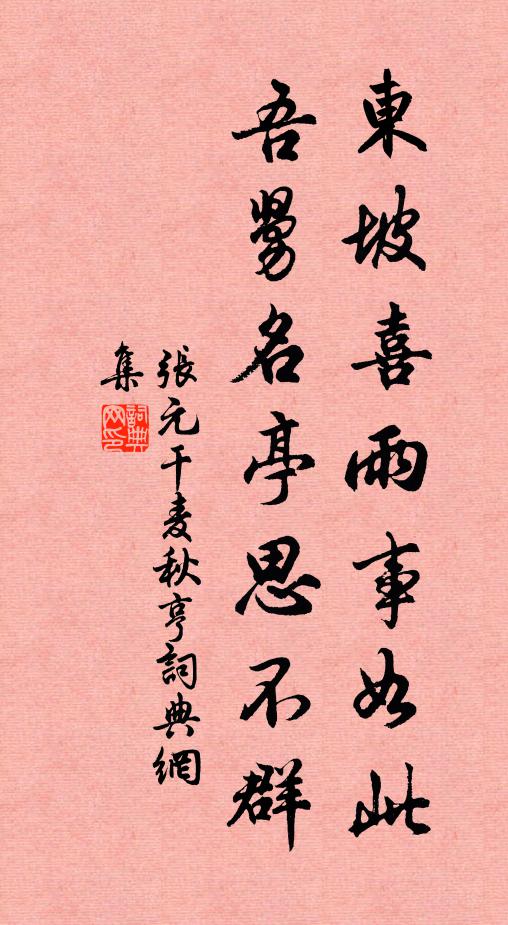 東坡喜雨事如此
吾舅名亭思不群
張元干麦秋亨詞典網
集
詞典
网印